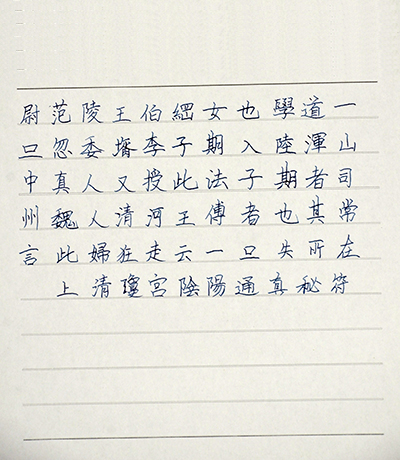 尉范陵王伯綱女也學道一
旦忽委壻李子期入陸渾山
中真人又授此法子期者司
州魏人清河王傅者也其常
言此婦狂走云一旦失所在
上清瓊宮陰陽通真秘符